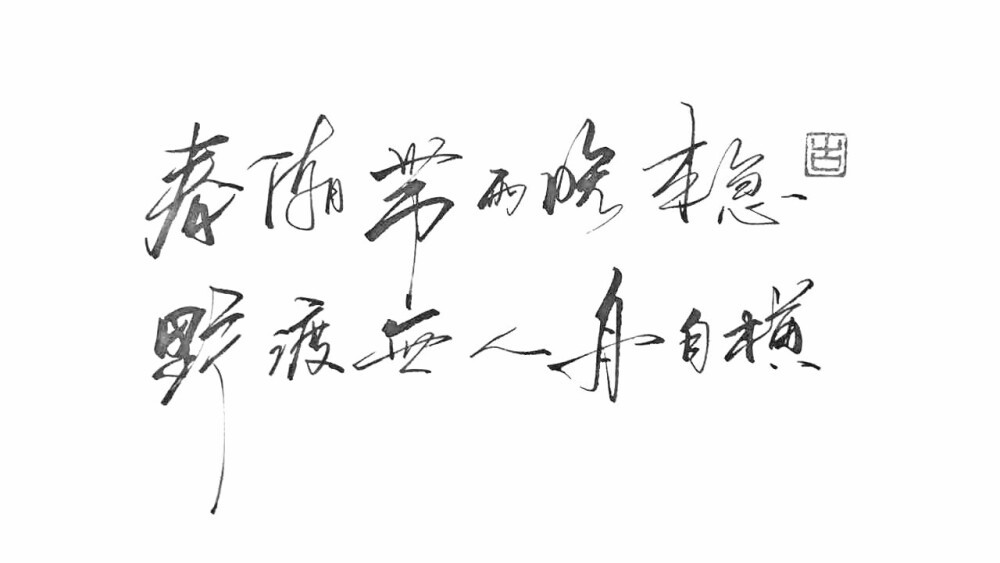 春潮带雨晚来急 古
野渡無人舟自横